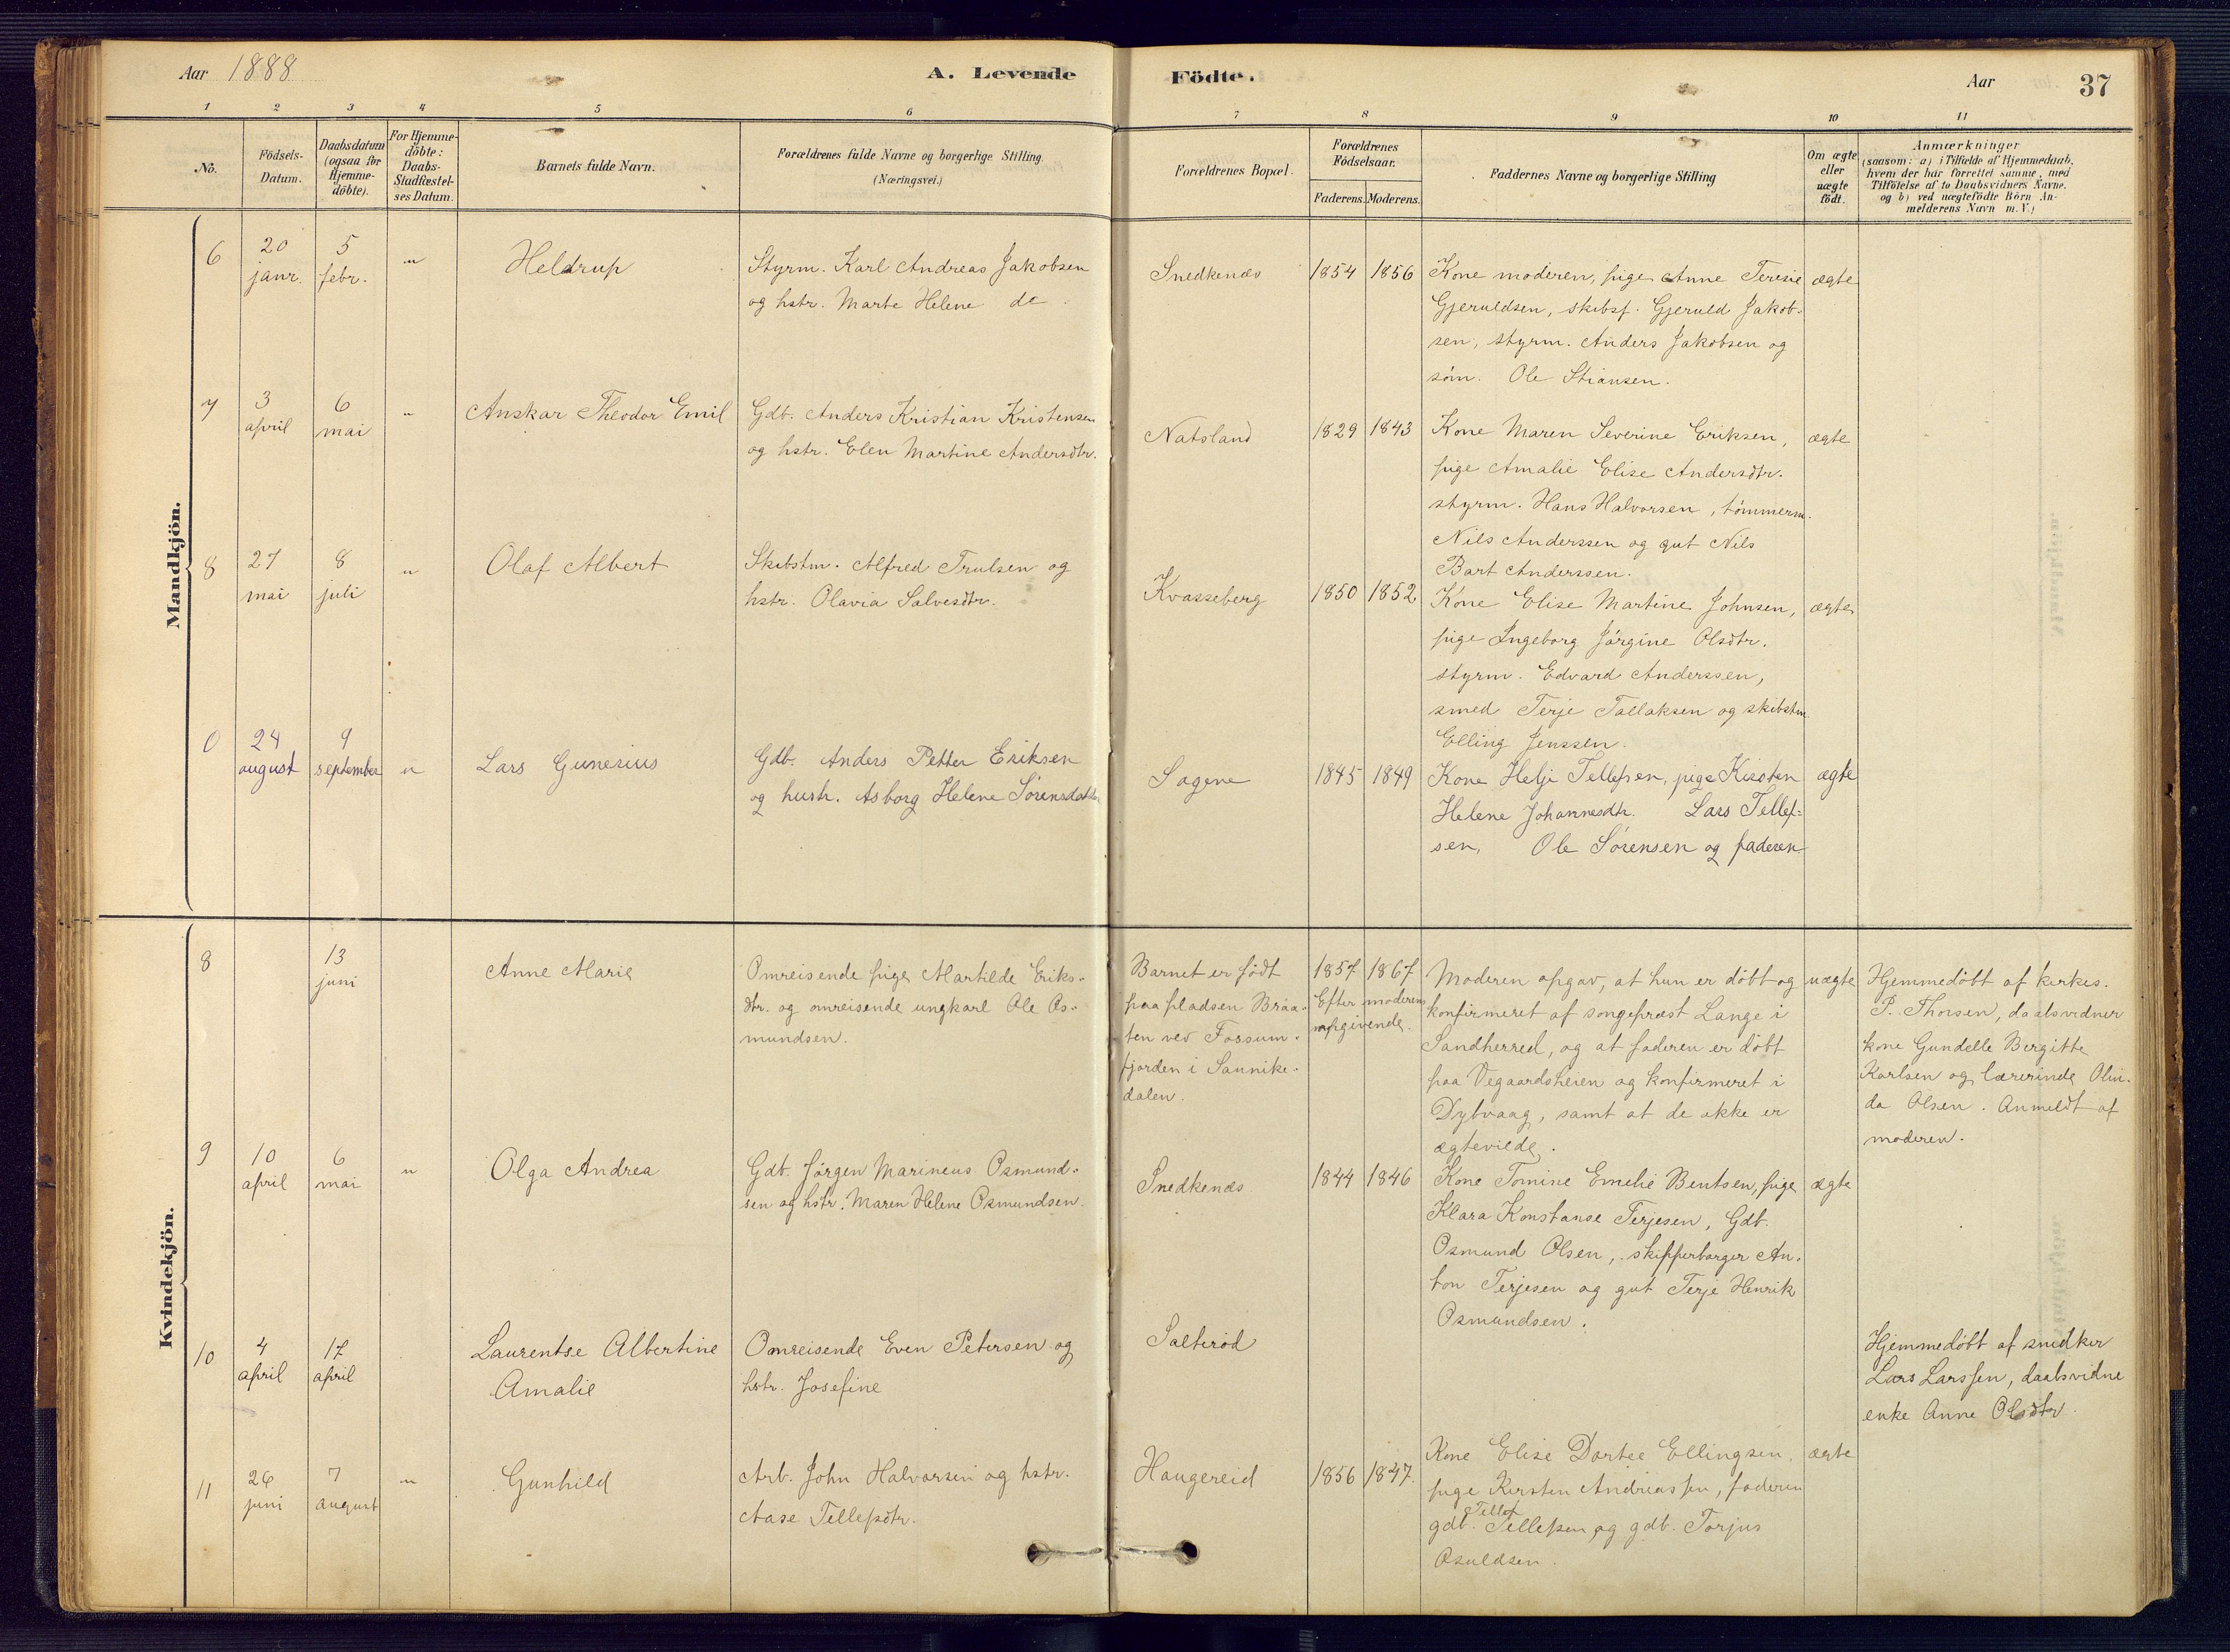 Aar 1888
A. Levende Födte.
Aar
37
1 2 3 4 5 6 7 8 9 10 11
No.
Födsels-
Datum.
Daabsdatum
(ogsaa for
Hjemme-
döbte).
For Hjemme-
döbte:
Daabs-
Stadfæstel-
ses Datum.
Barnets fulde Navn.
Forældrenes fulde Navne og borgerlige Stilling
(Næringsvei.)
Forældrenes Bopæl.
Forældrenes
Födselsaar.
Faderens. Moderens.
Faddernes Navne og borgerlige Stilling
Om ægte
eller
uægte
födt.
Anmærkninger
(saasom: a) i Tilfælde af Hjemmedaab,
hvem der har forrettet samme, med
Tilföielse af to Daabsvidners Navne.
og b) ved uægtefödte Börn An-
melderens Navn m. V.)
Mandkjön.
6
20
janr.
5
febr.
"
Heldrup
Styrm. Karl Andreas Jakobsen
og hstr. Marte Helene do.
Snedkenæs
1854 1856
Kone moderen, pige Anne Teresie
Gjeruldsen, skibsf. Gjeruld Jakob-
sen, styrm. Anders Jakobsen og
söm. Ole Stiansen.
ægte
7
3
april
6
mai
"
Anskar Theodor Emil
Gdb. Anders Kristian Kristensen
og hstr. Elen Martine Andersdtr.
Natsland
1829 1843
Kone Maren Severine Eriksen,
pige Amalie Elise Andersdtr.
styrm. Hans Halvorsen, tömmerm.
Nils Anderssen og gut Nils
Bart Anderssen.
ægte
8
27
mai
8
juli
"
Olaf Albert
Skibstm. Alfred Trulsen og
hstr. Olavia Salvesdtr.
Kvasseberg
1850 1852
Kone Elise Martine Johnsen,
pige Ingeborg Jörgine Olsdtr.
styrm. Edvard Anderssen,
smed Terje Tallaksen og skibstm.
Elling Jenssen.
ægte
24
august
9
september
"
Lars Gunerius
Gdb. Anders Petter Eriksen
og hustr. Asborg Helene Sörensdatter
Sagene
1845 1849
Kone Helje Tellefsen, pige Kirsten
Helene Johannesdtr. Lars Tellef-
sen, Ole Sörensen og faderen.
ægte
Kvindekjön.
8
13
juni
Anne Marie
Omreisende pige Martilde Eriks-
dtr. og omreisende ungkarl Ole Os-
mundsen.
Barnet er födt
paa pladsen Braa-
ten ved Fossum-
fjorden i Sannike-
dalen.
1857 1867
Efter moderens
opgivende.
Moderen opgav, at hun er döbt og
konfirmeret af sogneprest Lange i
Sandherred, og at faderen er döbt
paa Vegaardsheien og konfirmeret i
Dybvaag, samt at de ikke er
ægteviede.
uægte
Hjemmedöbt af kirkes.
P. Thorsen, daabsvidner
kone Gundelle Bergitte
Karlsen og lærerinde Olin-
da Olsen. Anmeldt af
moderen.
9
10
april
6
mai
"
Olga Andrea
Gdb. Jörgen Marineus Osmund-
sen og hstr. Maren Helene Osmundsen.
Snedkenæs
1844 1846
Kone Tomine Emelie Bentsen, pige
Klara Konstanse Terjesen, Gdb.
Osmund Olsen, skipperborger An-
ton Terjesen og gut Terje Henrik
Osmundsen.
ægte
10
4
april
17
april
Laurentse Albertine
Amalie
Omreisende Even Petersen og
hstr. Josefine
Salteröd
Hjemmedöbt af snedker
Lars Larssen, daabsvidne
enke Anne Olsdtr.
11
26
juni
7
august
"
Gunhild
Arb. John Halvorsen og hstr.
Aase Tellefsdtr.
Haugereid
1856 1847.
Kone Elise Dortee Ellingsen,
pige Kirsten Andreassen, faderen
gdb. Tellef Tellefsen og gdb. Torjus
Osuldsen.
ægte